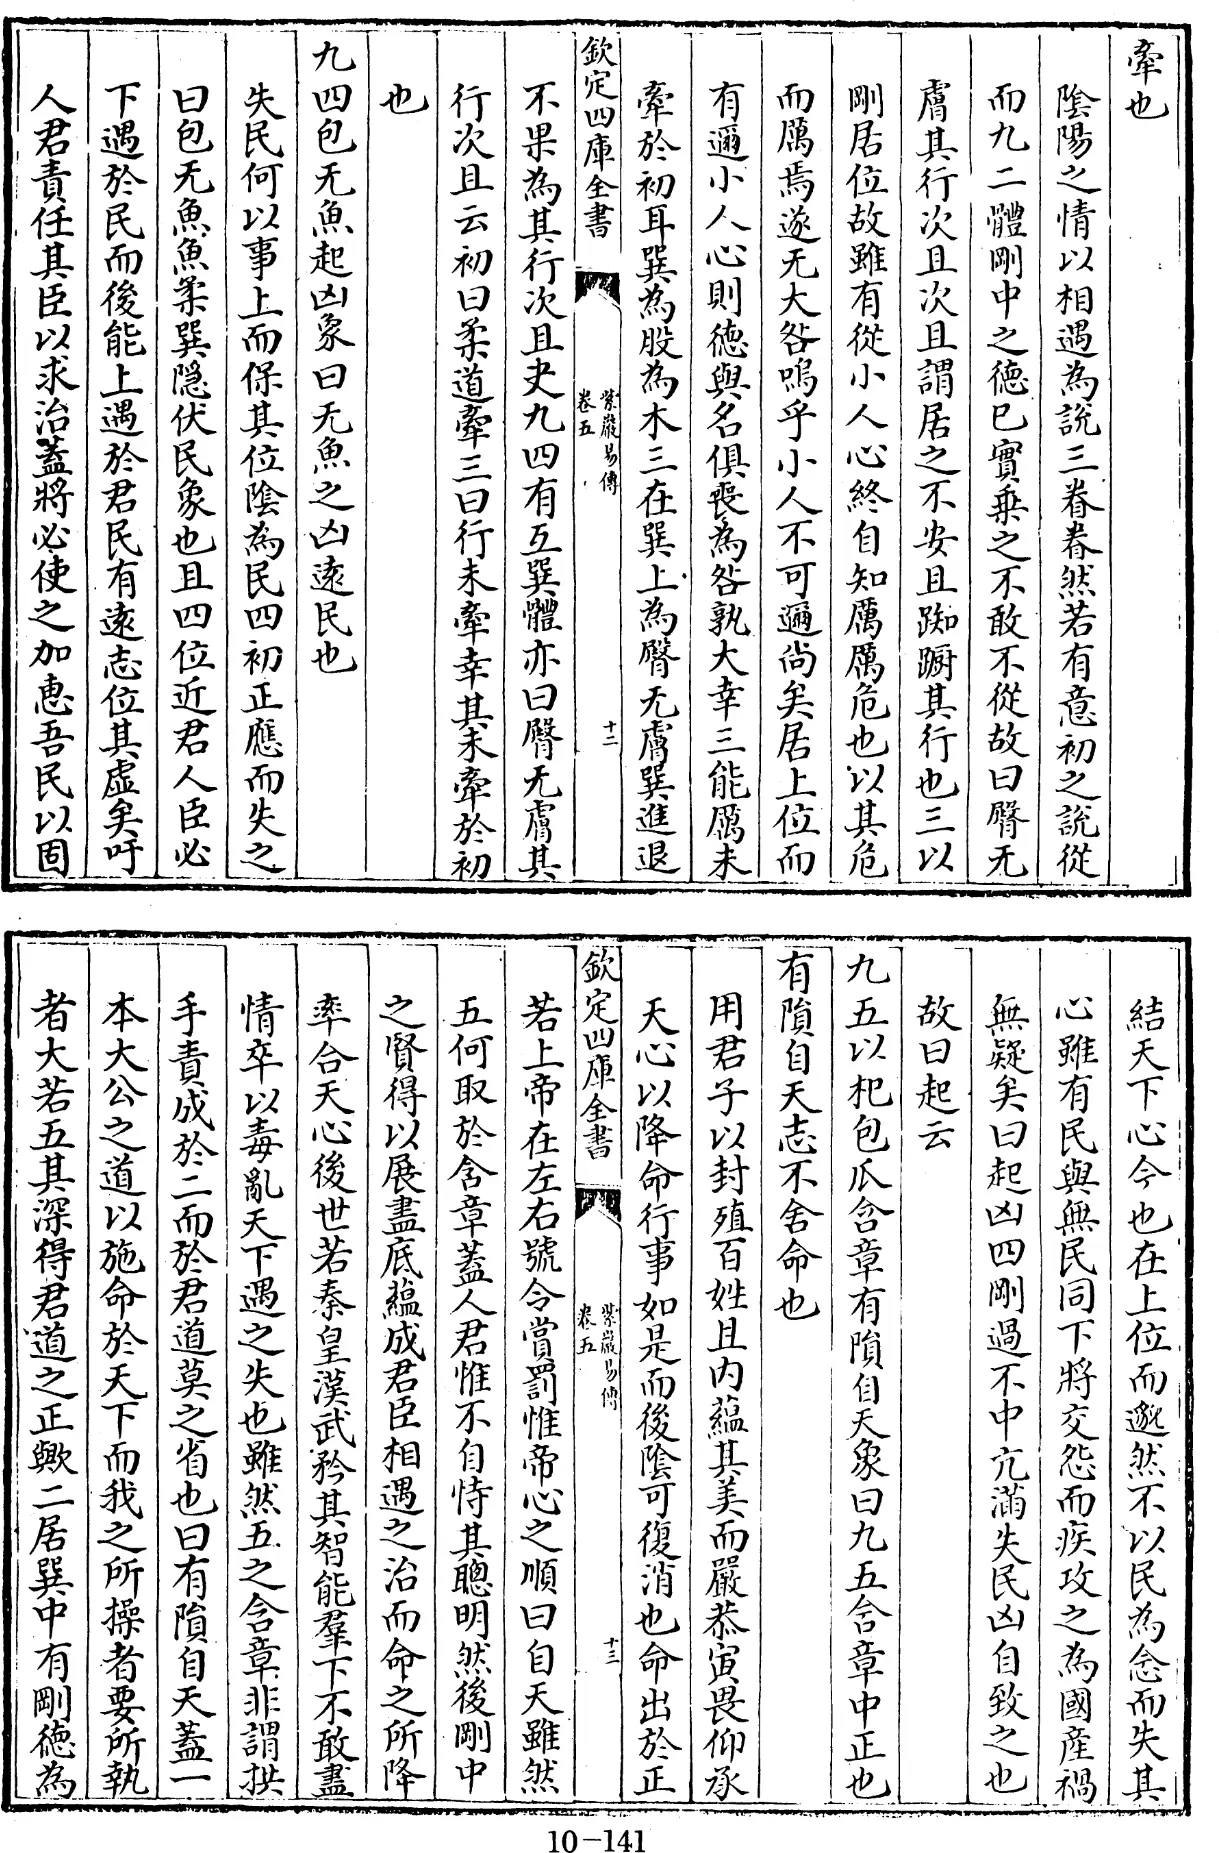 牽也
陰陽之情以相遇為說三眷眷然若有意初之說從
而九二體剛中之德已實乗之不敢不從故曰臀无
膚其行次且次且謂居之不安且踟蹰其行也三以
剛居位故雖有從小人心終自知厲厲危也以其危
而厲焉遂无大咎嗚乎小人不可邇尚矣居上位而
有邇小人心則德與名俱喪為咎孰大幸三能厲未
牽於初耳巽為股為木三在巽上為臀无膚巽進退
欽定四庫全書
紫巖易傳
卷五
十二
不果為其行次且夬九四有互巽體亦曰臀无膚其
行次且云初曰柔道牽三曰行未牽幸其未牽於初
也
九四包无魚起凶象曰无魚之凶遠民也
失民何以事上而保其位陰為民四初正應而失之
曰包无魚魚柔巽隱伏民象也且四位近君人臣必
下遇於民而後能上遇於君民有遠志位其虛矣吁
人君責任其臣以求治蓋將必使之加惠吾民以固
結天下心今也在上位而邈然不以民為念而失其
心雖有民與無民同下將交怨而疾攻之為國産禍
無疑矣曰起凶四剛過不中亢滿失民凶自致之也
故曰起云
九五以杞包瓜含章有隕自天象曰九五含章中正也
有隕自天志不舍命也
用君子以封殖百姓且内蘊其美而嚴恭寅畏仰承
天心以降命行事如是而後陰可復消也命出於正
欽定四庫全書
紫巖易傳
卷五
十三
若上帝在左右號令賞罰惟帝心之順曰自天雖然
五何取於含章蓋人君惟不自恃其聰明然後剛中
之賢得以展盡底蘊成君臣相遇之治而命之所降
率合天心後世若秦皇漢武矜其智能羣下不敢盡
情卒以毒亂天下遇之失也雖然五之含章非謂拱
手責成於二而於君道莫之省也曰有隕自天蓋一
本大公之道以施命於天下而我之所操者要所執
者大若五其深得君道之正歟二居巽中有剛德為
10-141